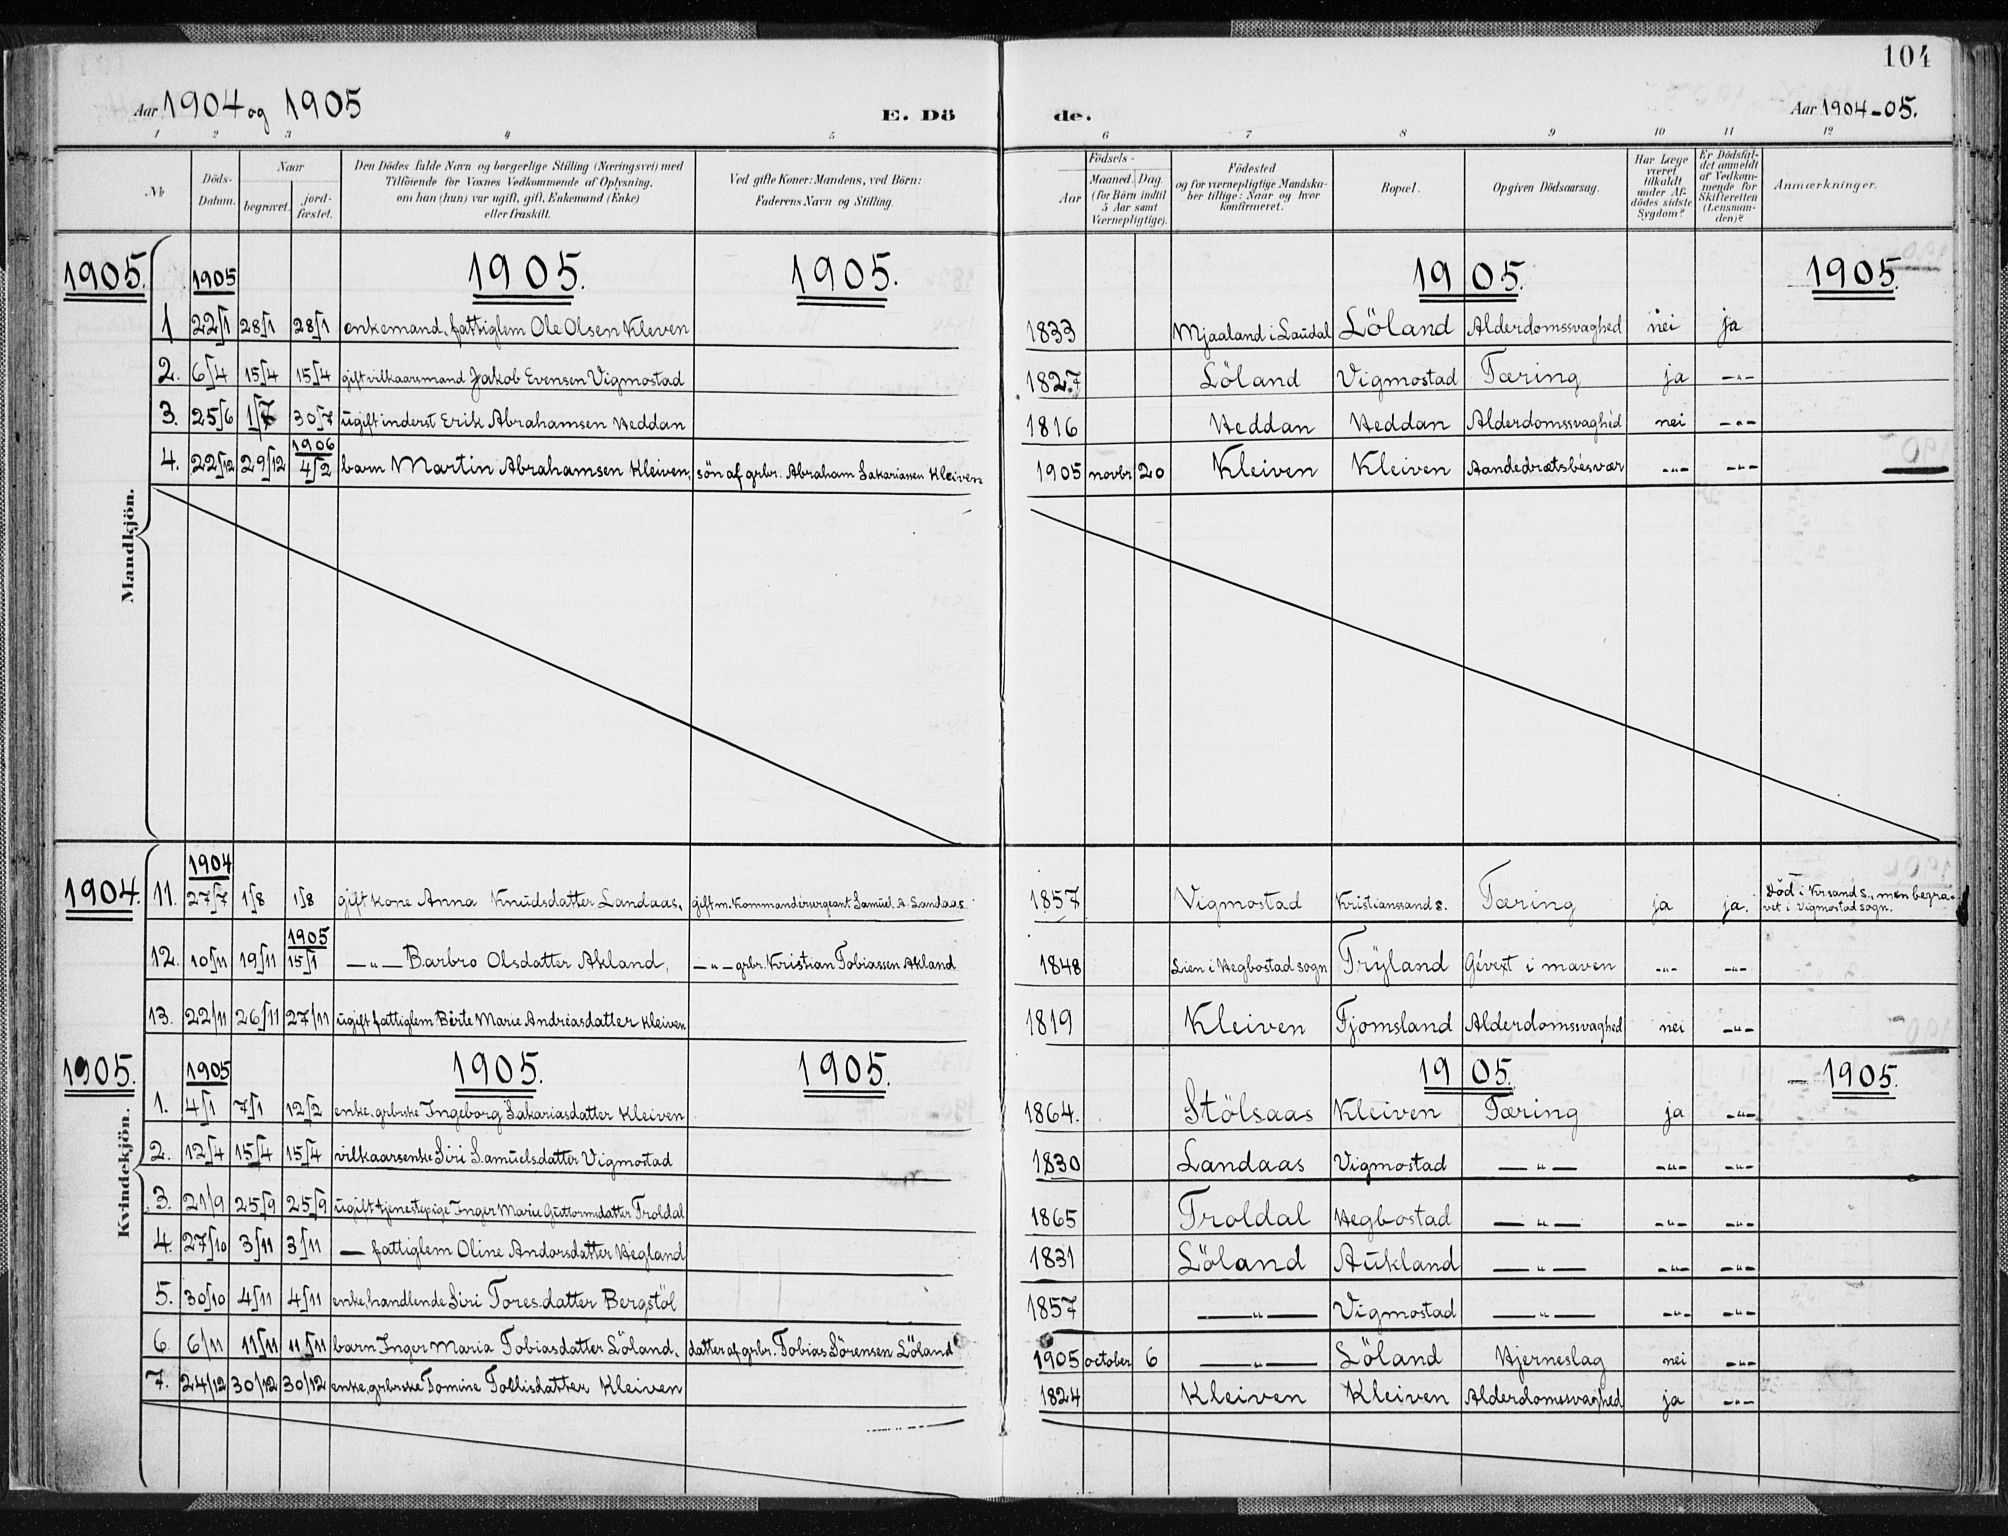 104
Aar 1904 og 1905 E. Dö de. Aar 1904-05.
1 2 3 4 5 6 7 8 9 10 11 12
No
Döds-Datum.
Naar
begravet. jord-fæstet.
Den Dödes fulde Navn og borgerlige Stilling (Næringsvei) med
Tilföiende for Voxnes Vedkommende af Oplysning,
om han (hun) var ugift, gift, Enkemand (Enke)
eller fraskilt.
Ved gifte Koner: Mandens, ved Börn:
Faderens Navn og Stilling.
Födsels-
Aar
Maaned. Dag
(for Börn indtil
5 Aar samt
Værnepligtige).
Födested
og for værnepligtige Mandska-
ber tillige: Naar og hvor
konfirmeret.
Bopæl.
Opgiven Dödsaarsag.
Har Læge
været
tilkaldt
under Af-
dödes sidste
Sygdom?
Er Dödsfal-
det anmeldt
af Vedkom-
mende for
Skifteretten
(Lensman-
den)?
Anmærkninger.
Mandkjön.
1905. 1905 1905. 1905. 1905. 1905.
1 22/1 28/1 28/1 enkemand, fattiglem Ole Olsen Kleven 1833 Mjaaland i Laudal Löland Alderdomssvaghed nei ja
2. 6/4 15/4 15/4 gift vilkaarsmand Jakob Evensen Vigmostad 1827 Löland Vigmostad Tæring ja -"-
3. 25/6 1/7 30/7 ugift inderst Erik Abrahamsen Heddan 1816 Heddan Heddan Alderdomssvaghed nei -"-
1906
4. 22/12 29/12 4/2 barn Martin Abrahamsen Kleiven, sön af grbr. Abraham Sakariassen Kleiven 1905 novbr 20 Kleiven Kleiven Aandedrætsbesvær -"- -"-
Kvindekjön.
1904
1904. 11. 27/7 1/8 1/8 gift kone Anna Knudsdatter Landaas, gift m. Kommandersergeant Samuel A. Landaas 1857 Vigmostad Kristianssand S. Tæring ja ja. Död i Krsand S., men begra-
vet i Vigmostad sogn.
1905
12. 10/11 19/11 15/1 -"- Barbro Olsdatter Akland, -"- grbr. Kristian Tobiassen Akland 1848 Lien i Hegbostad sogn Tryland Gevext i maven -"- -"-
13. 22/11 26/11 27/11 ugift fattiglem Berte Marie Andreasdatter Kleiven 1819 Kleiven Fjomsland Alderdomssvaghed nei -"-
1905. 1905 1905. 1905. 1905. 1905.
1. 4/1 7/1 12/2 enke, grbrske Ingeborg Sakariasdatter Kleiven 1864. Stölsaas Kleiven Tæring ja -"-
2. 12/4 15/4 15/4 vilkaarsenke Siri Samuelsdatter Vigmostad 1830 Landaas Vigmostad -"- -"- -"-
3. 21/9 25/9 25/9 ugift tjenestepige Inger Marie Guttormsdatter Troldal 1865 Troldal Hegbostad -"- -"- -"-
4. 27/10 3/11 3/11 — fattiglem Oline Andorsdatter Hegland 1831 Löland Aukland -"- -"- -"-
5. 30/10 4/11 4/11 enke, handlende Siri Toresdatter Bergstöl 1857 -"- Vigmostad -"- -"- -"-
6 6/11 11/11 11/11 barn Inger Maria Tobiasdatter Löland, datter af grbr. Tobias Sörensen Löland 1905 october 6 -"- Löland Hjerneslag nei -"-
7. 24/12 30/12 30/12 enke, grbrske Tomine Tollisdatter Kleiven 1824 Kleiven Kleiven Alderdomssvaghed ja -"-